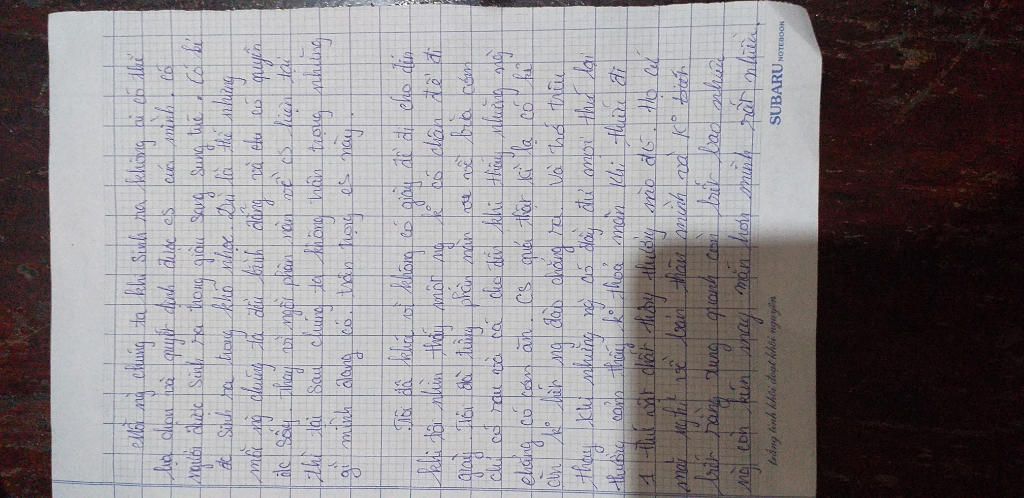 Mỗi ng chúng ta khi sinh ra không ai có thể
lựa chọn và quyết định được cs của mình. Có
người được sinh ra trong giàu sang sung túc. Có kẻ
đc sinh ra trong khó nhọc. Dù là thế nhưng
mỗi ng chúng ta đều bình đẳng và đều có quyền
đc sống. Thay vì ngồi phàn nàn về cs hiện tại
thì tại sao chúng ta không trân trọng những
gì mình đang có. trân trọng cs này.
"Tôi đã khóc vì không có giày để đi cho đến
khi tôi nhìn thấy một ng k° có chân để đi
giày. Tôi đã từng phàn nàn về về bữa cơm
chỉ có rau và cá cho đến khi thấy những ng
chẳng có cơm ăn. CS quả thật kì lạ có kẻ
còn k° biết ng đào chẳng ra. Và trớ trêu
thay khi những ng có đầy đủ mọi thứ lại
thường cảm thấy k° thoả mãn khi thiếu đi
1 thứ vật chất tầm thường nào đó. Họ cứ
mải nghĩ về bản thân mình và k° biết
biết rằng xung quanh còn biết bao nhiêu
ng con kém may mắn hơn mình rất nhiều.
SUBARU NOTEBOOK